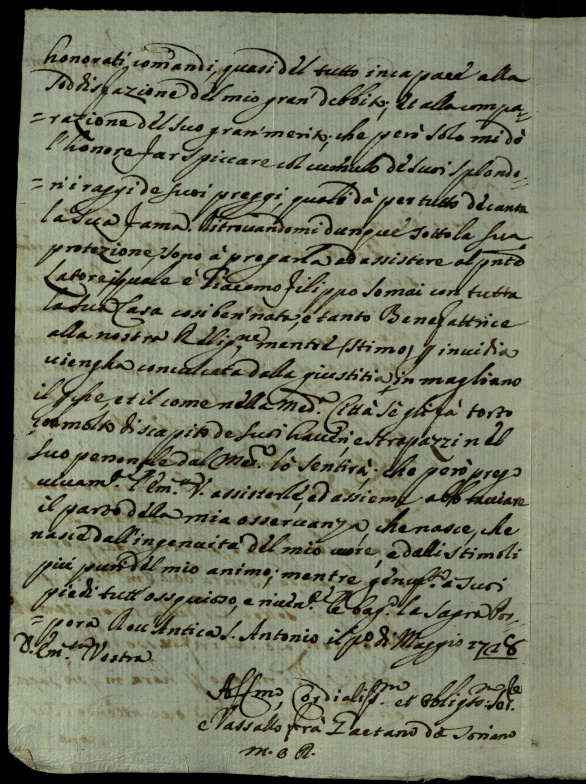 honorati comandi, quasi del tutto incapace alla
Soddisfazione del mio gran debbito; et alla compa=
=razione del suo gran merito; che però solo mi dò
l'honore far spiccare col cumulo de suoi splendo=
=ri i raggi de suoi preggi, quali dà per tutto decanta
la sua fama. Ritrovandomi dunque sotto la sua
protezione sono à pregarla ad assistere al pnte
Latore, il quale è Giacomo Filippo Somai con tutta
la sua Casa cosi ben nata, e tanto Benefattrice
alla nostra Relig.ne mentre, stimo, p invidia
viengha conculcata dalla giustitia in magliano
il che, et il come nella med.a Città se gli fà torto
con molto discapito de suoi haveri, e strapazzi nel
suo personale dal Med.o lò sentirà; che però prego
vivam.e l'Em.a V. assisterlo, ed assieme
il parto della mia osservanza, che nasce, che
nasce dall'ingenuita del mio core, e dalli stimoli
più puri del mio animo; mentre genuf.o à suoi
piedi tutt'ossequioso, e river.e le bag.o la Sagra Por=
=pora Rev. Antica S. Antonio il p.o di Maggio 1718
D. Em.za Vostra
Aff.mo, Cordialiss.mo et Oblig.mo Ser.e
e Vassallo frà Gaetano da Soriano
m. o R.